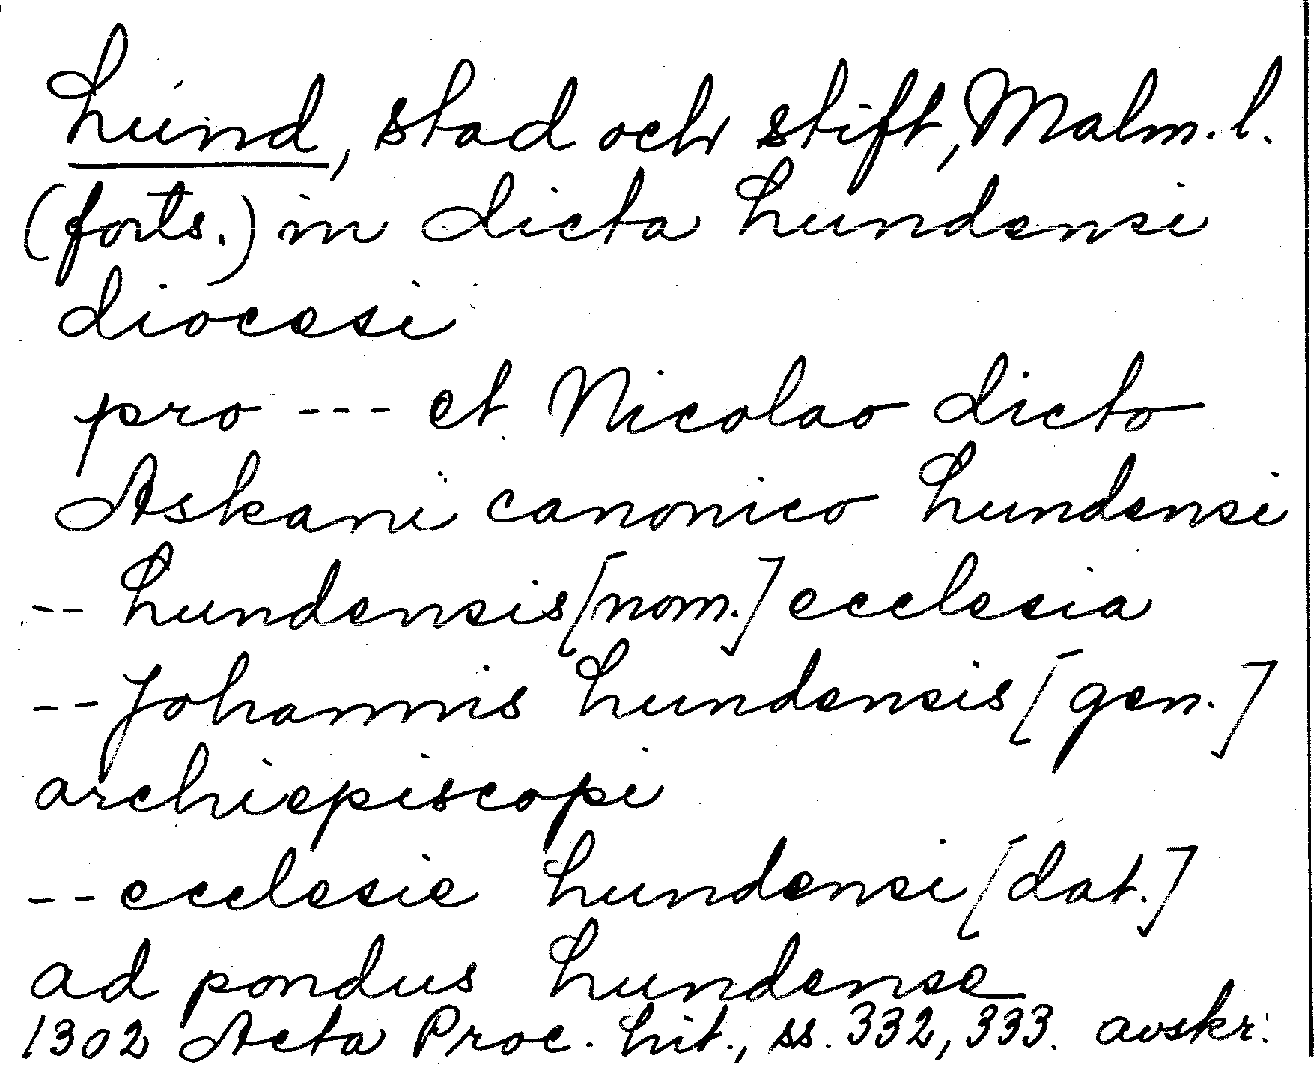 Lund, stad och stift, Malm. l.
(forts.) in dicta Lundensi
diocesi
pro --- et Nicolao dicto
Askani canonico Lundensi
-- Lundensis [nom.] ecclesia
-- Johannis Lundensis [gen.]
archiepiscopi
-- ecclesie Lundensi [dat.]
ad pondus Lundense
1302 Acta Proc. Lit., ss. 332, 333. avskr.